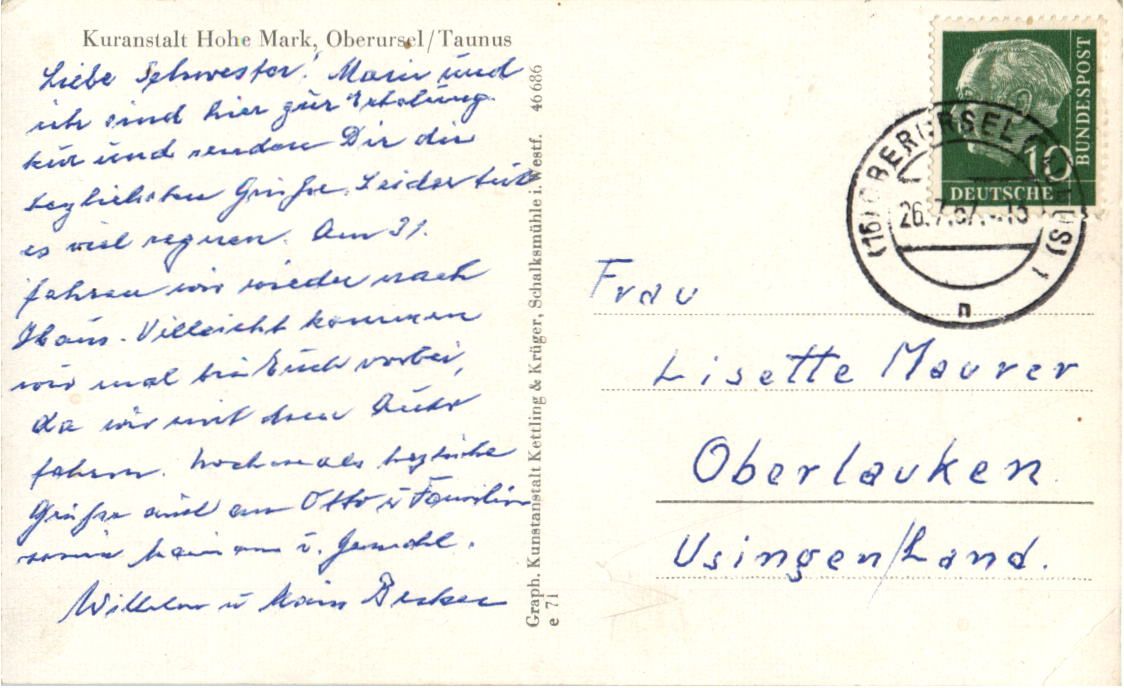 Kuranstalt Hohe Mark, Oberursel/Taunus
Liebe Schwester! Marie und
ich sind hier zur Erholung
kur und senden Dir die
herzlichsten Grüße. Leider tut
es viel regnen. Am 31.
fahren wir wieder nach
Haus. Villeicht kommen
wir mal bei Euch vorbei,
da wir mit dem Auto
fahren. Nochmals herzliche
Grüße auch an Otto u Familie
sowie u. Gemahl.
Wilhelm u Marie Becker
Graph. Kunstanstalt Kettling & Krüger, Schalksmühle i. Westf. 46686
e 71
DEUTSCHE
BUNDESPOST
10
(16) OBERURSEL (TAUNUS) 1
26.7.57.-13
n
Frau
Lisette Maurer
Oberlauken
Usingen/Land.